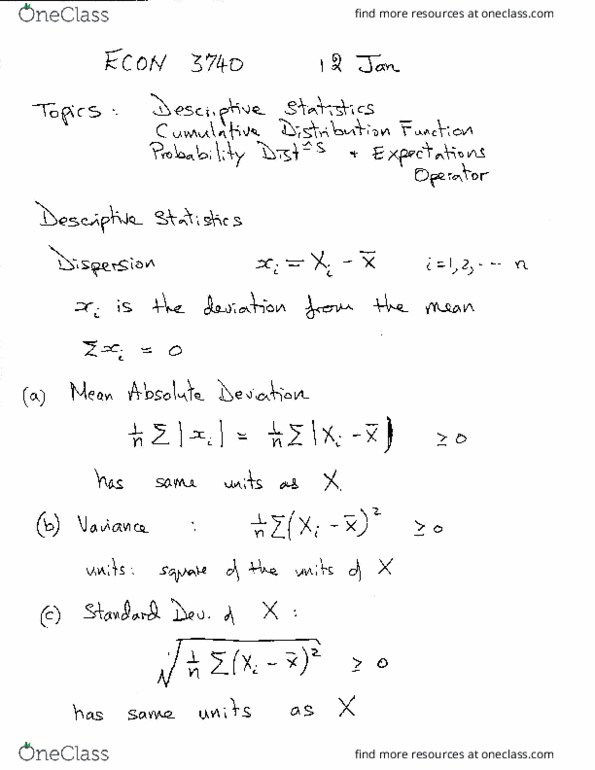 OneClass find more resources at oneclass.com
ECON 3740 12 Jan
Topics: Descriptive Statistics
Cumulative Distribution Function
Probability Distⁿˢ + Expectations
Operator
Descriptive Statistics
Dispersion xᵢ = Xᵢ - X̄ i=1,2,... n
xᵢ is the deviation from the mean
Σxᵢ = 0
(a) Mean Absolute Deviation
1/n Σ|xᵢ| = 1/n Σ|Xᵢ - X̄| ≥0
has same units as X.
(b) Variance : 1/n Σ(Xᵢ - X̄)² ≥0
units: square of the units of X
(c) Standard Dev. of X :
√(1/n Σ(Xᵢ - X̄)²) ≥ 0
has same units as X
OneClass find more resources at oneclass.com